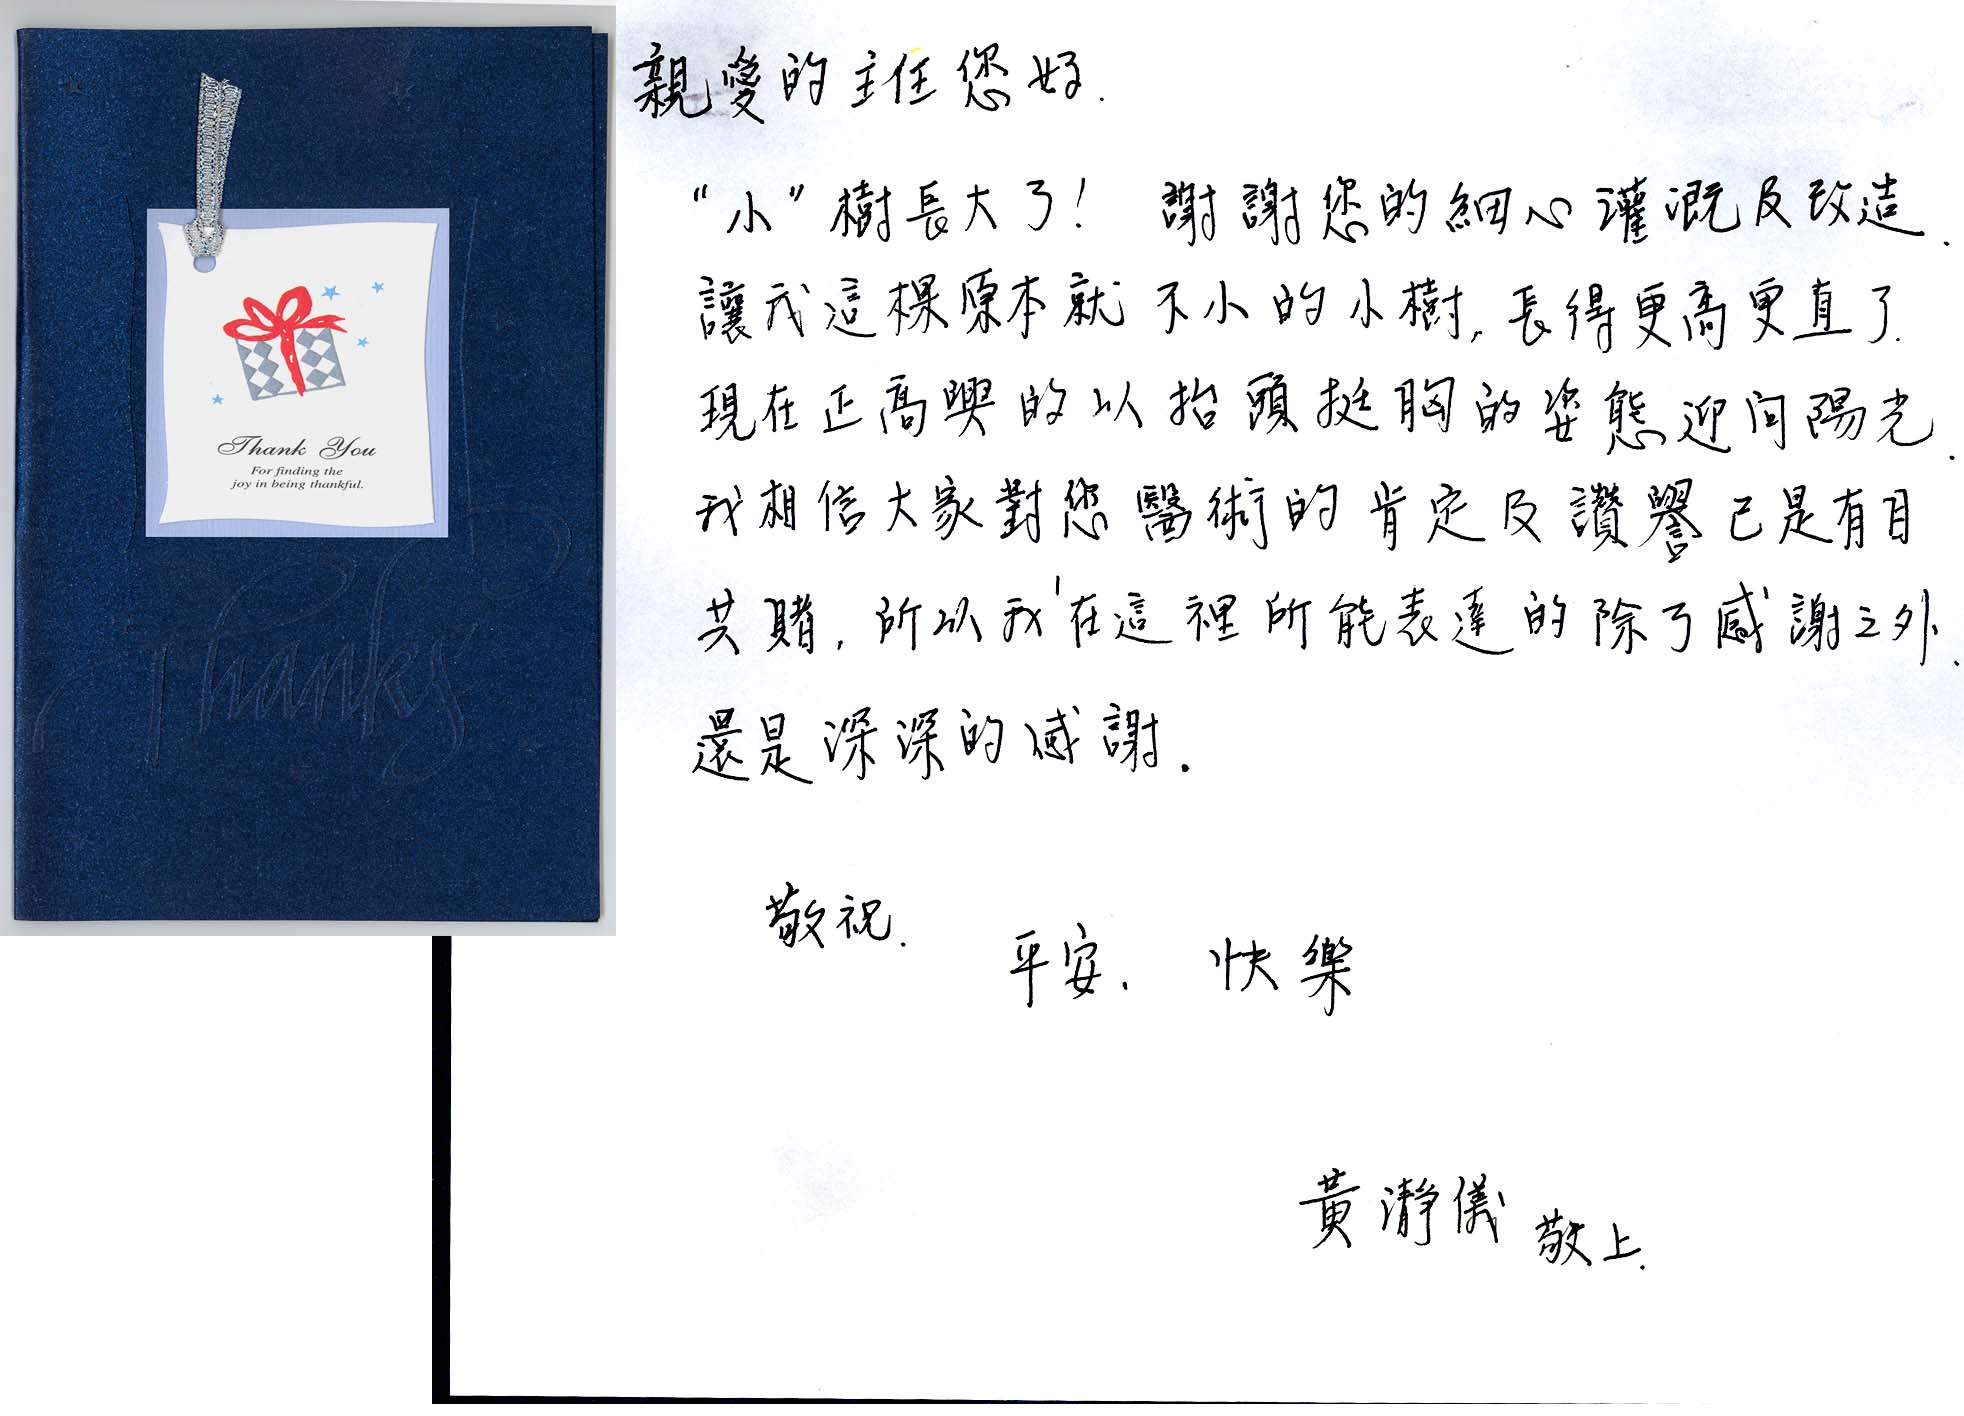 Thank You
For finding the
joy in being thankful.
Thanks
親愛的主任您好.
"小"樹長大了! 謝謝您的細心灌溉及改造.
讓我這棵原本就不小的小樹,長得更高更直了.
現在正高興的以抬頭挺胸的姿態迎向陽光.
我相信大家對您醫術的肯定及讚譽已是有目
共賭,所以我在這裡所能表達的除了感謝之外.
還是深深的感謝.
敬祝.
平安. 快樂
黃瀞儀 敬上.